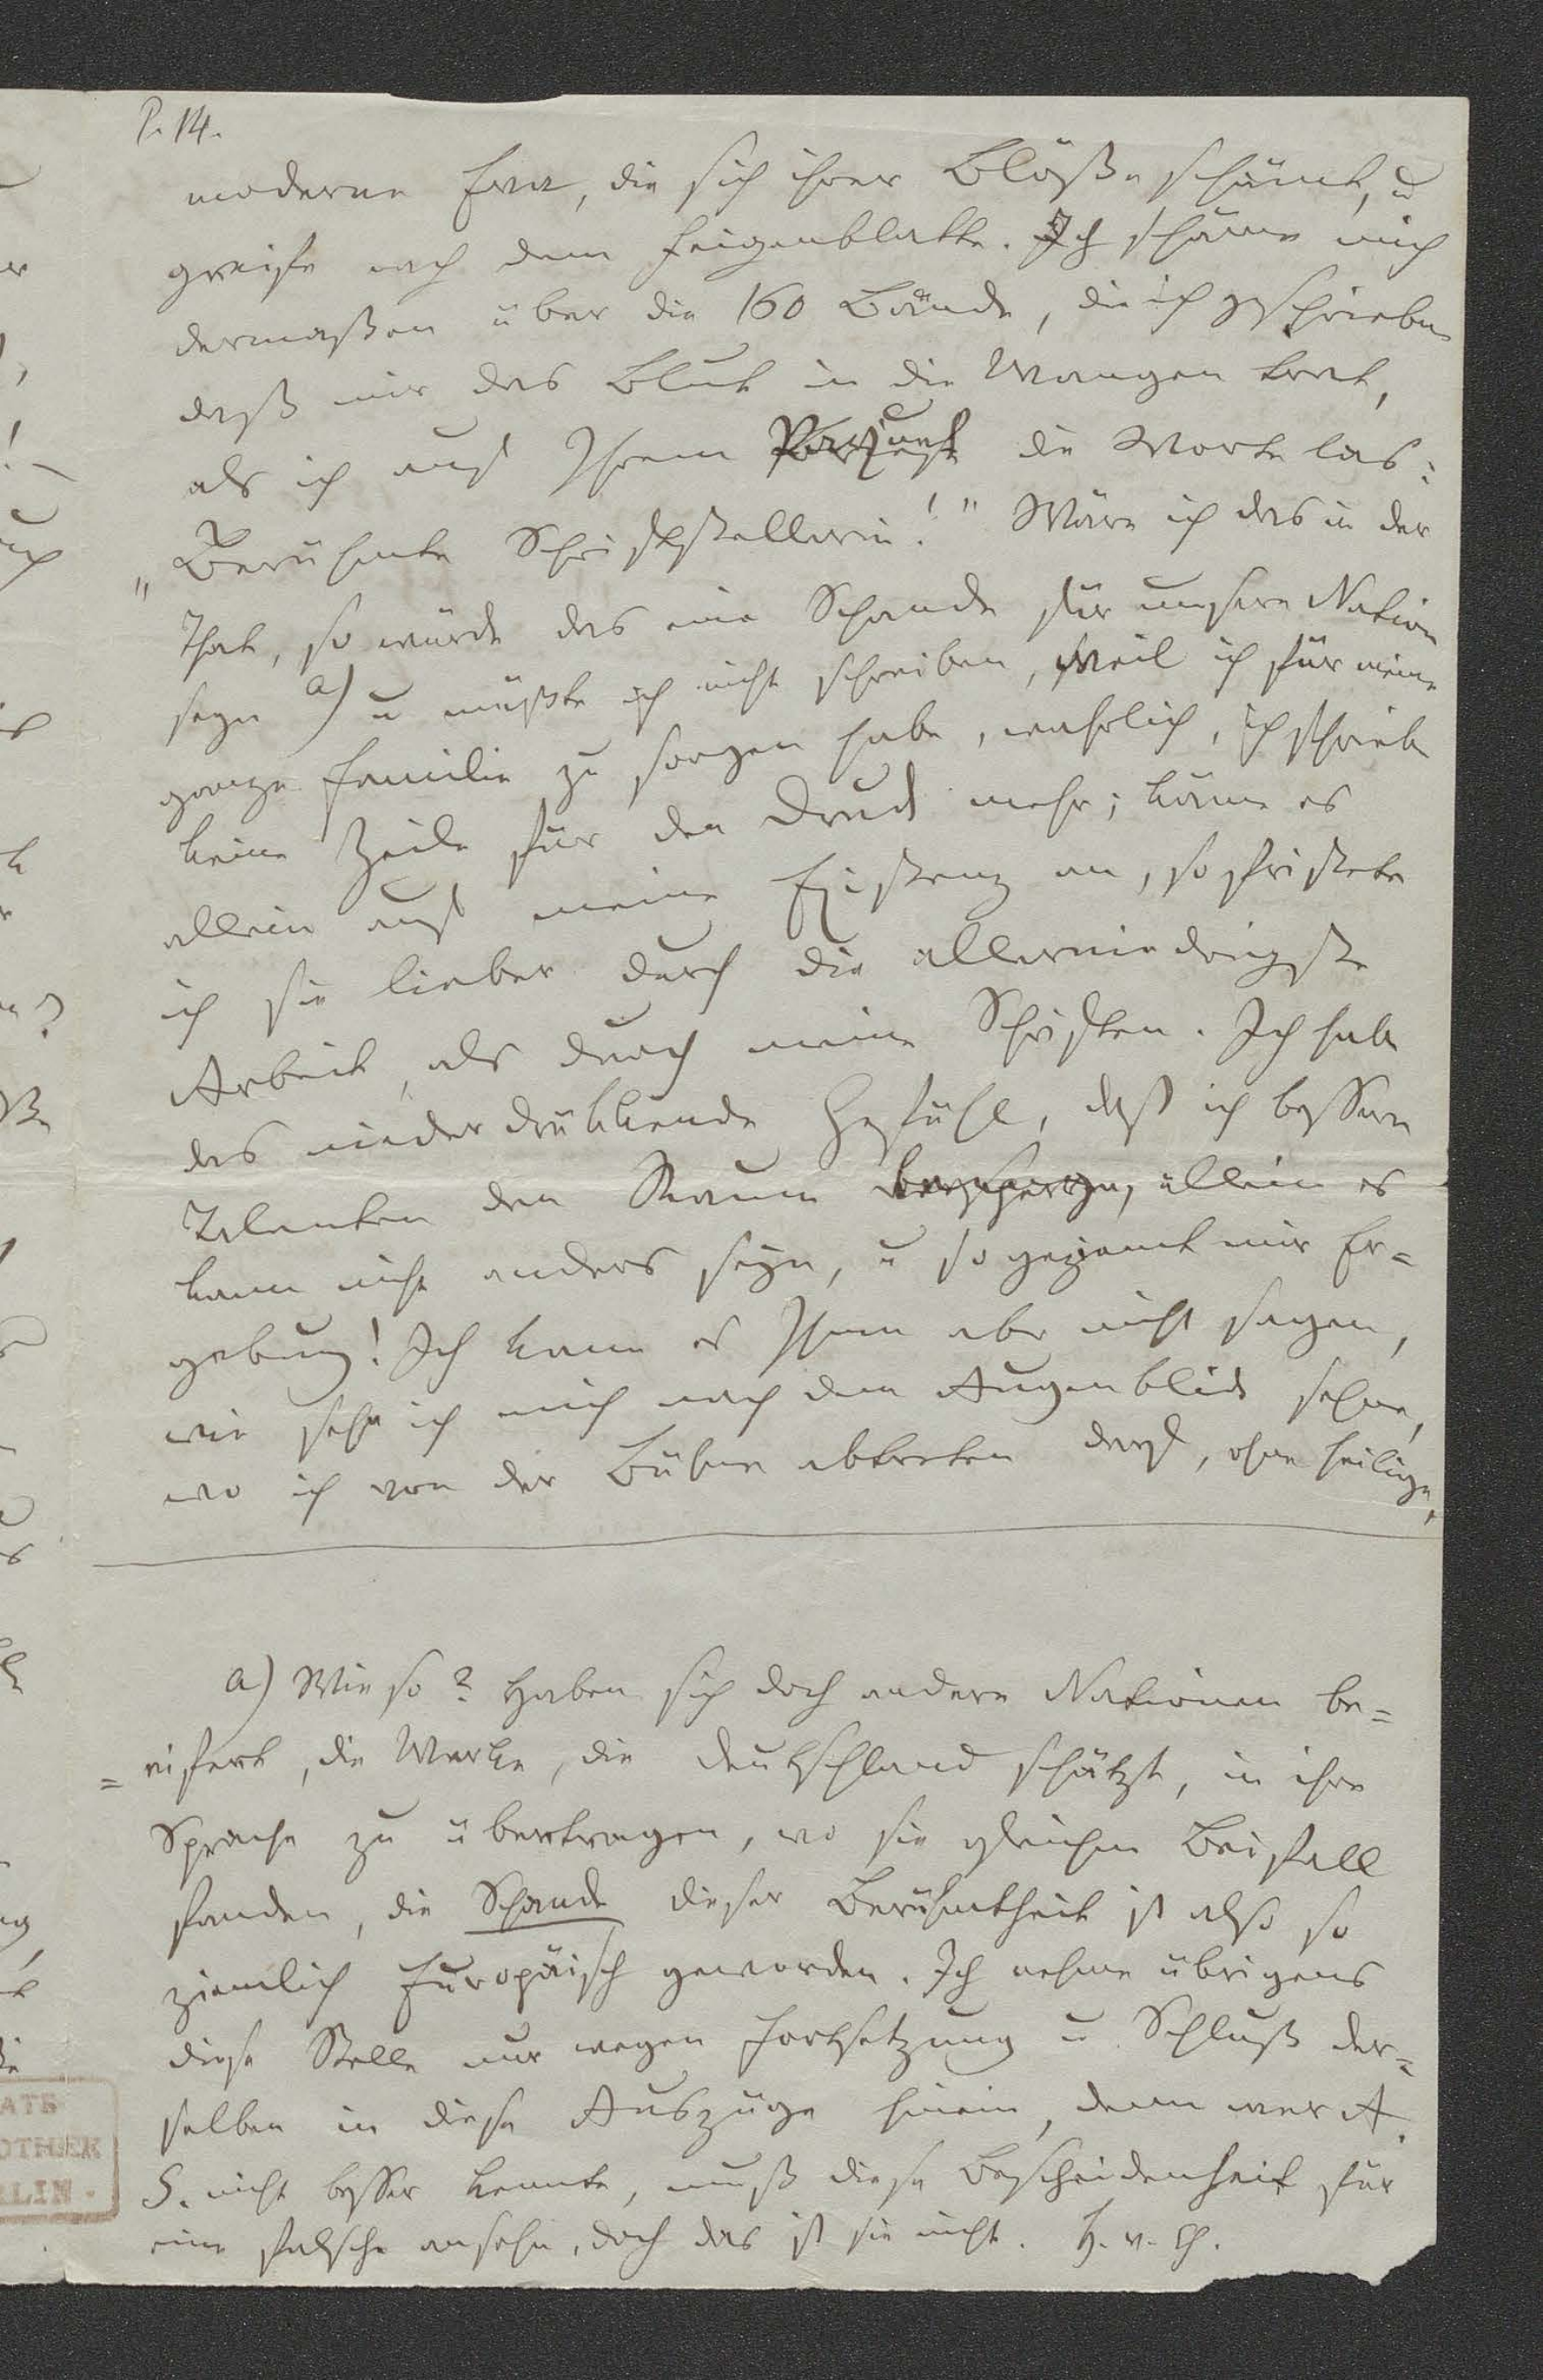 P. 14.
moderne Eva, die sich ihrer Blöße schämt, u
greife nach dem Feigenblatte. Ich schäme mich
dermaßen über die 160 Bände, die ich geschrieben
daß mir das Blut in die Wangen trat,
als ich auf Ihrem die Worte las:
"Berühmte Schriftstellerin!" Wäre ich das in der
That, so würde das eine Schande für unsere Nation
seyn a) u müßte ich nicht schreiben, weil ich für meine
ganze Familie zu sorgen habe, wahrlich, ich schriebe
keine Zeile für den Druck mehr; käme es
allein auf meine Existenz an, so fristete
ich sie lieber durch die allerniedrigste
Arbeit, als durch meine Schriften. Ich habe
das niederdrükkende Gefühl, daß ich bessern
Talenten den Raum allein es
kann nicht anders seyn, u so geziemt mir Er=
gebung! Ich kann es Ihnen aber nicht sagen,
wie sehr ich mich nach dem Augenblick sehne,
wo ich von der Bühne abtreten darf, ohne heilige,
a) Wie so? Haben sich doch andere Nationen be=
=eifert, die Werke, die Deutschland schätzt, in ihre
Sprache zu übertragen, wo sie gleichen Beifall
fanden, die Schande dieser Berühmtheit ist also so
ziemlich Europäisch geworden. Ich nehme übrigens
diese Stelle nur wegen Fortsetzung u Schluß der=
selben in diese Auszüge hinein, denn wer A.
S. nicht besser kennte, muß diese Bescheidenheit für
eine falsche ansehn, doch das ist sie nicht. H. v. Ch.